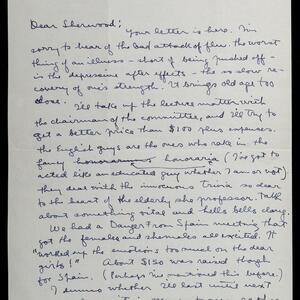 Dear Sherwood:
Your letter is here. I'm
sorry to hear of the bad attack of flu. The worst
thing of an illness - short of being pushed off -
is the depressive after effects - the so slow re-
covery of one's strength. It brings old age too
close.
I'll take up the lecture matter with
the chairman of the committee, and I'll try to
get a better price than $100 plus expenses.
The English guys are the ones who rake in the
fancy honoraria (I've got to
acted like an educated guy whether I am or not)
they deal with the innocuous trivia so dear
to the heart of the elderly she professor. Talk
about something vital and hells bells clang.
We had a Danger From Spain meeting that
got the females and shemales all excited. It
"worked up the emotions too much on the dear
girls!" About $150 was raised though
for Spain. (Perhaps I've mentioned this before.)
I dunno whether I'll last until next